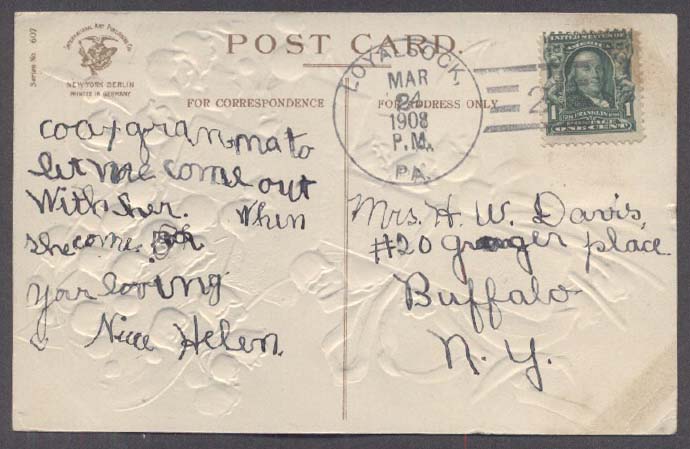 Series No. 607
INTERNATIONAL ART PUBLISHING Co.
NEW YORK BERLIN
PRINTED IN GERMANY
POST CARD.
FOR CORRESPONDENCE
FOR ADDRESS ONLY
LOYALSOCK,
MAR
24
1908
P.M.
PA.
2
UNITED STATES OF
1 FRANKLIN 1
ONE CENT
coax granmato
let me come out
With her. When
she come
your loving
Niece Helen.
Mrs. H. W. Davis,
#20 granger place
Buffalo
N. Y.